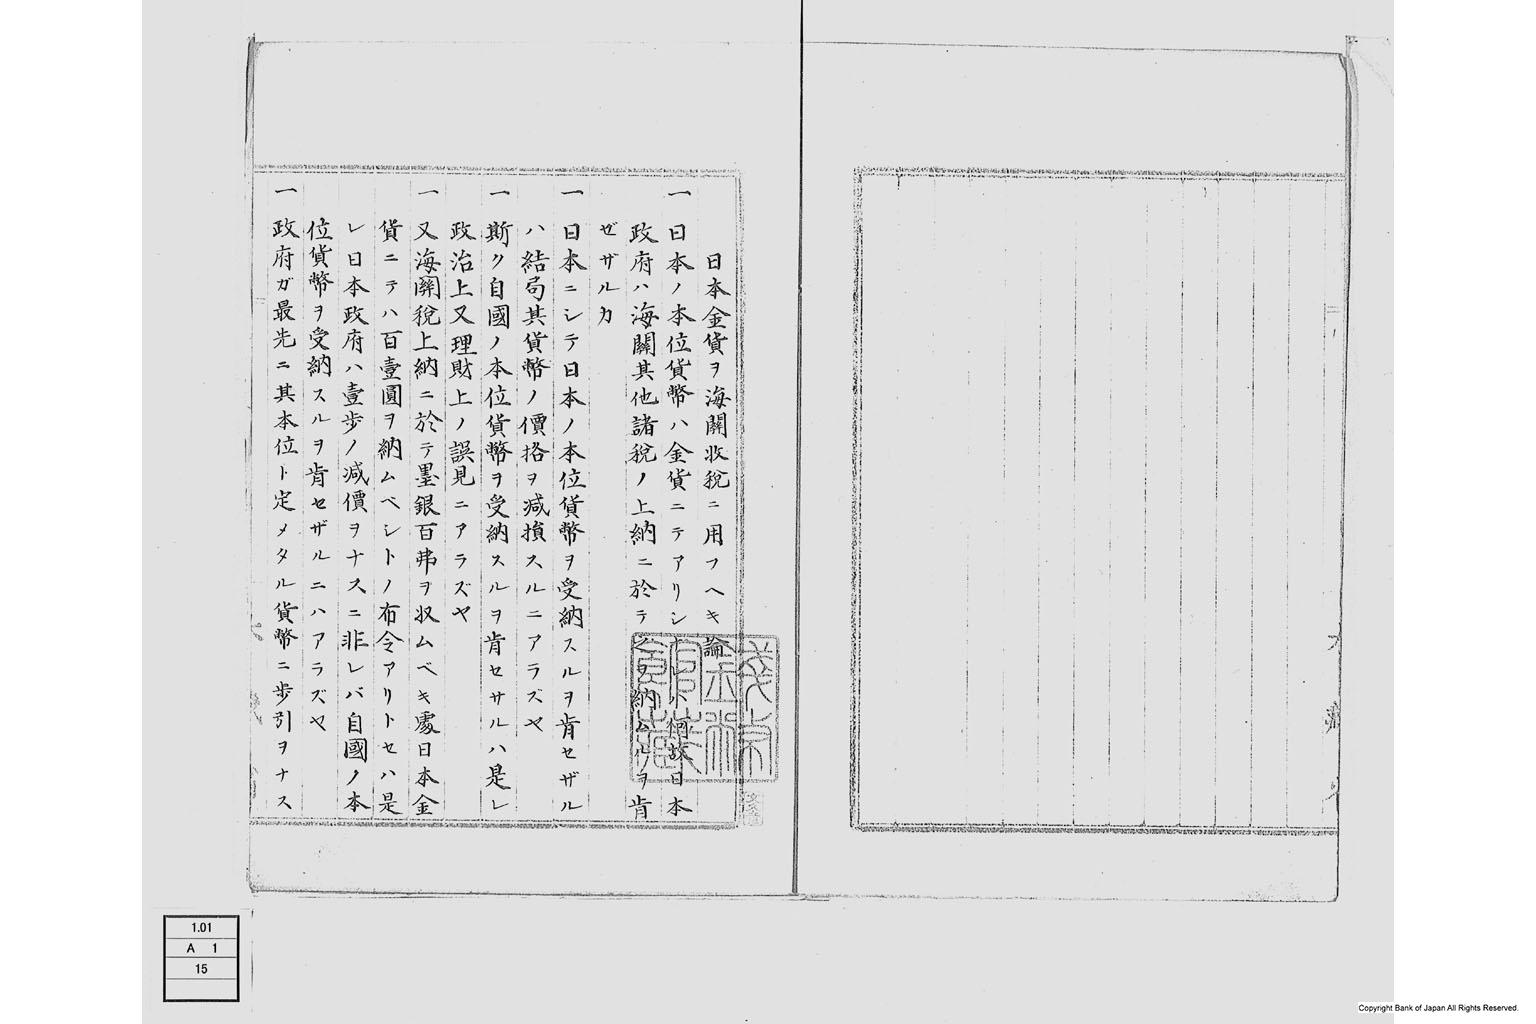 日本金貨ヲ海關收稅ニ用フヘキ論
一 日本ノ本位貨幣ハ金貨ニテアリシナレハ何故日本
政府ハ海關其他諸税ノ上納ニ於テ之ヲ納ムルヲ肯
ゼザルカ
一 日本ニシテ日本ノ本位貨幣ヲ受納スルヲ肯セザル
ハ結局其貨幣ノ價格ヲ減損スルニアラズヤ
一 斯ク自國ノ本位貨幣ヲ受納スルヲ肯セサルハ是レ
政治上又理財上ノ誤見ニアラズヤ
一 又海關稅上納ニ於テ墨銀百弗ヲ収ムベキ處日本金
貨ニテハ百壹圓ヲ納ムベシトノ布令アリトセハ是
レ日本政府ハ壹歩ノ減價ヲナスニ非レバ自國ノ本
位貨幣ヲ受納スルヲ肯セザルニハアラズヤ
一 政府ガ最先ニ其本位ト定メタル貨幣ニ歩引ヲナス
1.01
A 1
15
Copyright Bank of Japan All Rights Reserved.